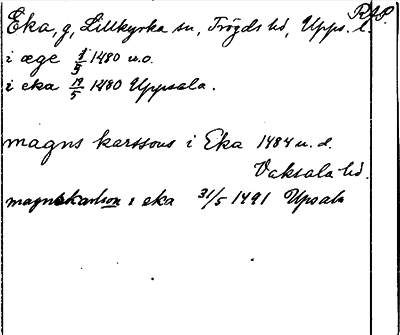 RAP.
Eka, g, Lillkyrka sn, Trögds hd, Upps. l.
i æge 1/5 1480 u.o.
i eka 19/5 1480 Uppsala.
magns karssons i Eka 1484 u. d.
Vaksala hd.
magns karlson i eka 31/5 1491 Upsala